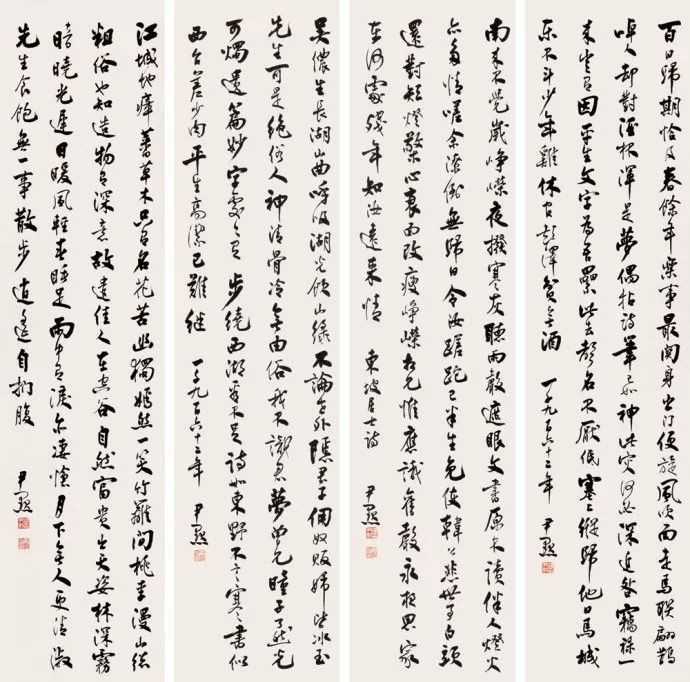 百日歸期恰及春餘年樂事最關身出門便旋風吹面走馬聯翩鵲
啅人却對酒杯渾是夢偶拈詩筆已如神此灾何必深追咎竊祿一
來豈有因平生文字為吾累此去聲名不厭低塞上縱歸他日馬城
東不斗少年雞休官彭澤貧無酒 一千九百六十三年 尹默
南來不覺歲崢嶸夜撥寒灰聽雨聲遮眼文書原不讀伴人燈火
亦多情嗟余潦倒無歸日令汝蹉跎已半生免使韓公悲世事白頭
還對短燈檠心衰面改瘦崢嶸相見惟應識舊聲永夜思家
在何處殘年知汝遠來情 東坡居士詩
吳儂生長湖山曲呼吸湖光飲山綠不論世外隱君子傭奴販婦皆冰玉
先生可是絕俗人神清骨冷無由俗我不識君夢曾見瞳子了然光
可燭遺篇妙字處處有步繞西湖看不足詩如東野不言寒書似
西台差少肉平生高潔已難繼 一千九百六十三年 尹默
江城地瘴蕃草木只有名花苦幽獨嫣然一笑竹籬間桃李漫山總
粗俗也知造物有深意故遣佳人在空谷自然富貴出天姿林深霧
暗曉光遲日暖風輕春睡足雨中有淚亦悽愴月下無人更清淑
先生食飽無一事散步逍遙自捫腹 尹默